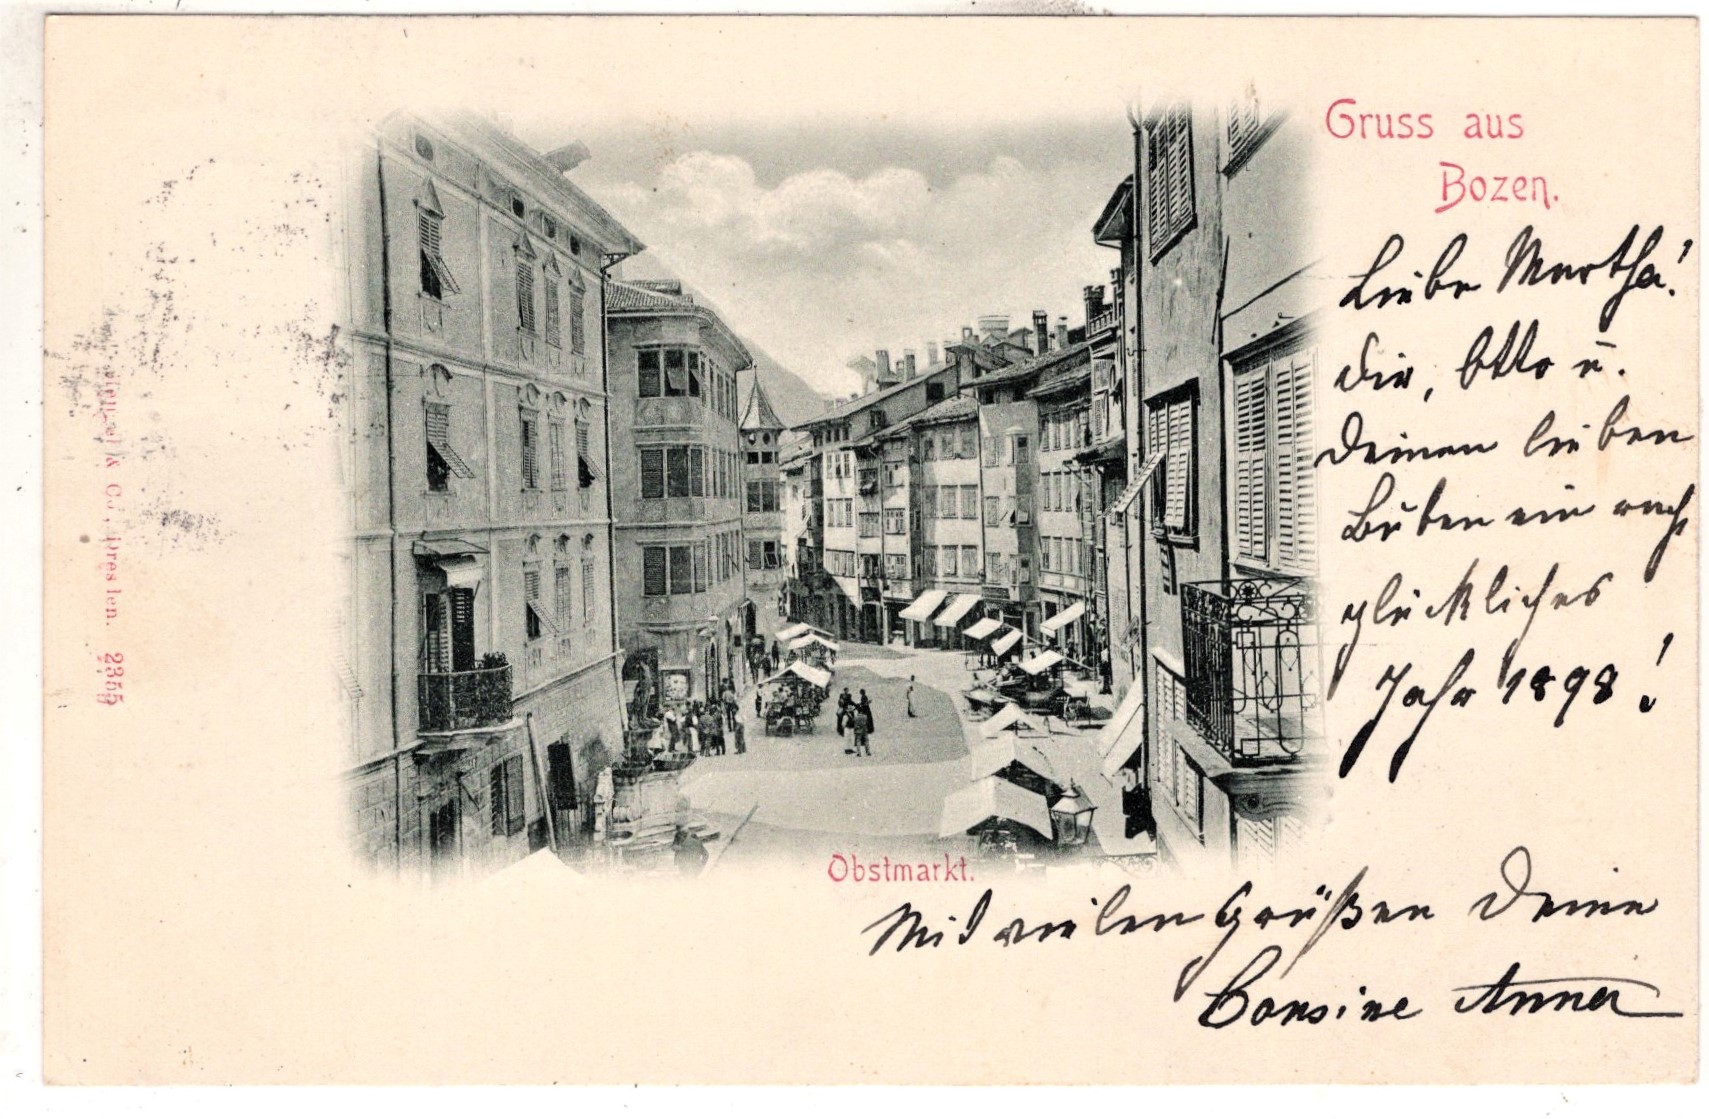 Gruss aus
Bozen.
Liebe Martha!
Dir, Otto u.
Deinen lieben
Buben ein recht
glückliches
Jahr 1898!
Obstmarkt.
Mit vielen Grüßen Deine
Cousine Anna
& Co., 2355